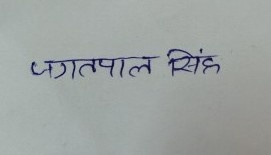 जगतपाल सिंह